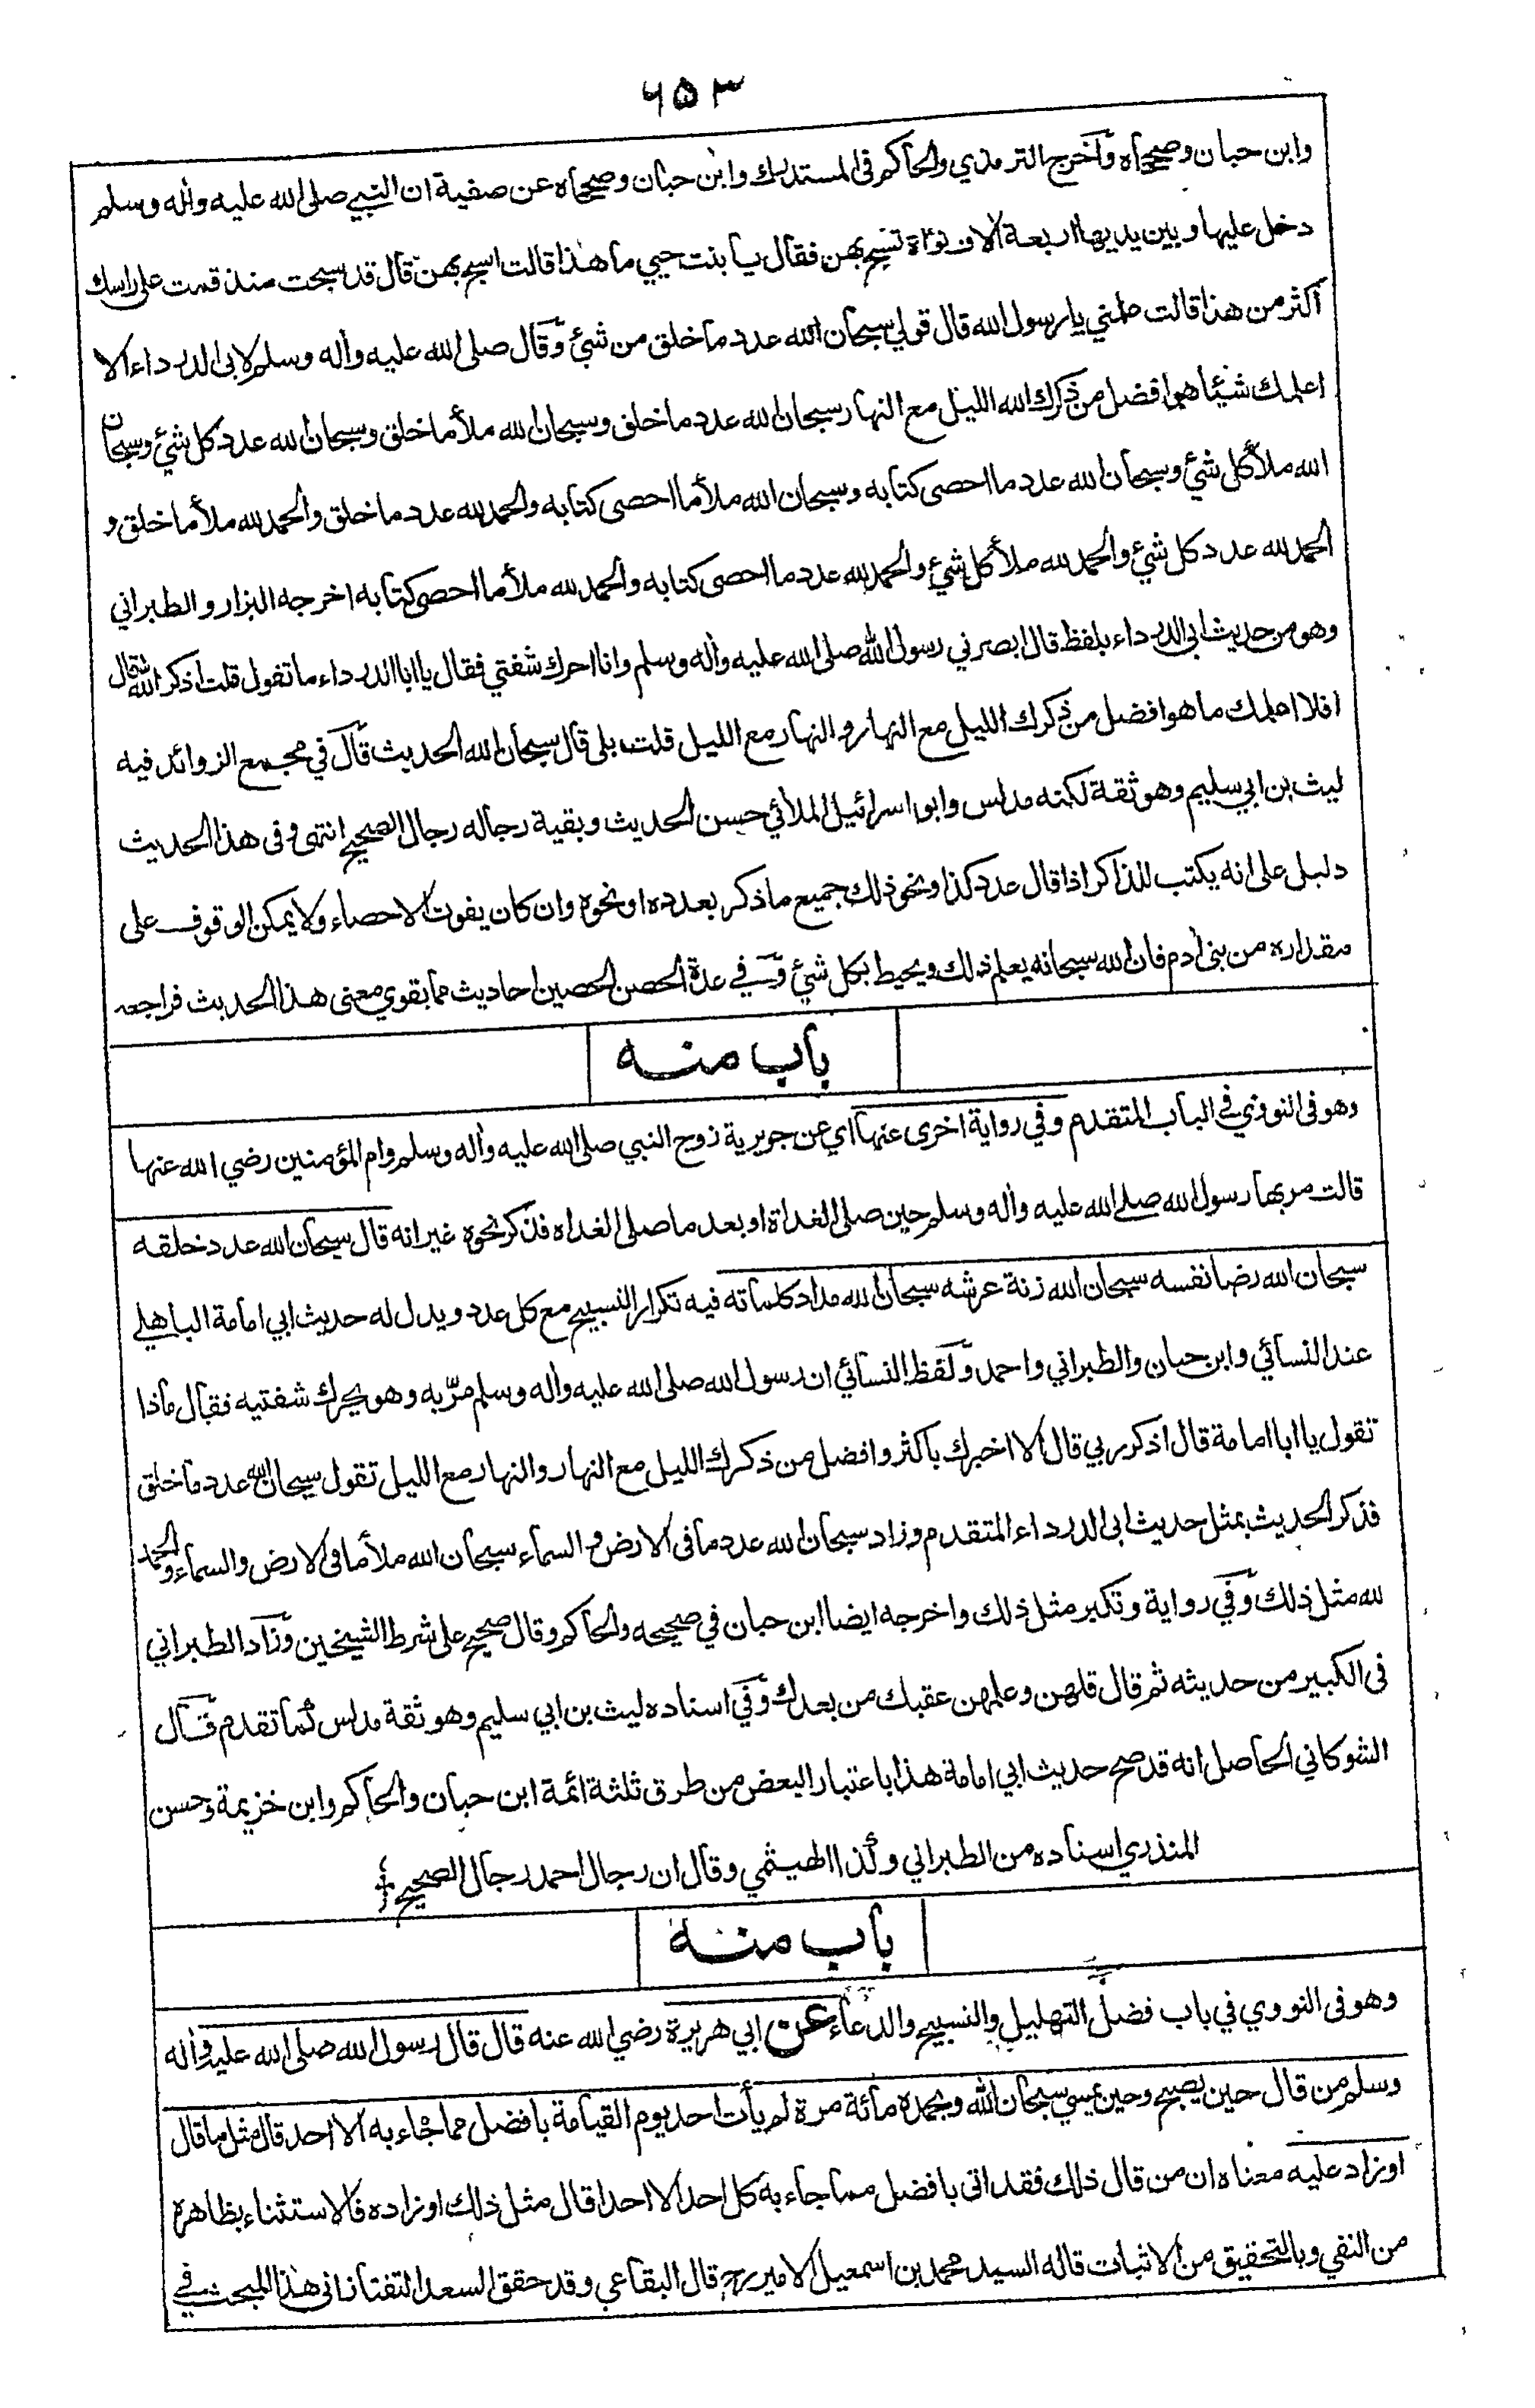 ٦٥٣
وابن حبان وصححاه وآخرج الترمذي والحاكم في المستدرك وابن حبان وصححاه عن صفية ان النبي صلى الله عليه واٰله وسلم
دخل عليها وبين يديها اربعة اٰلاف نواة تسبح بهن فقال يا بنت حيي ما هذا قالت اسبح بهن قال قد سبحت منذ قمت على راسك
اكثر من هذا قالت علمني يا رسول الله قال قولي سبحان الله عدد ما خلق من شئ وقال صلى الله عليه واٰله وسلم لابى الدرداء الا
اعلمك شيئا هو افضل من ذكرك الله الليل مع النهار سبحان الله عدد ما خلق وسبحان الله ملأ ما خلق وسبحان الله عدد كل شئ وسبحان
الله ملأ كل شئ وسبحان الله عدد ما احصى كتابه وسبحان الله ملأ ما احصى كتابه والحمد لله عدد ما خلق والحمد لله ملأ ما خلق و
الحمد لله عدد كل شئ والحمد لله ملأ كل شئ والحمد لله عدد ما احصى كتابه والحمد لله ملأ ما احصى كتابه اخرجه البزار والطبراني
وهو من حديث ابى الدرداء بلفظ قال ابصرني رسول الله صلى الله عليه واٰله وسلم وانا احرك شفتي فقال يا ابا الدرداء ما تقول قلت اذكر الله قال
افلا اعلمك ما هو افضل من ذكرك الليل مع النهار والنهار مع الليل قلت بلى قال سبحان الله الحديث قال في مجمع الزوائد فيه
ليث بن ابي سليم وهو ثقة لكنه مدلس وابو اسرائيل الملائي حسن الحديث وبقية رجاله رجال الصحيح انتهى وفى هذا الحديث
دليل على انه يكتب للذاكر اذا قال عدد كذا ونحو ذلك جميع ما ذكر بعدده او نحوه وان كان يفوت الاحصاء ولا يمكن الوقوف على
مقداره من بنى اٰدم فان الله سبحانه يعلم ذلك ويحيط بكل شئ وفي عدة الحصن الحصين احاديث مما يقوي معنى هذا الحديث فراجعه
باب منه
وهو فى النووي في الباب المتقدم وفي رواية اخرى عنها اي عن جويرية زوج النبي صلى الله عليه واٰله وسلم وام المؤمنين رضي الله عنها
قالت مر بها رسول الله صلى الله عليه واٰله وسلم حين صلى الغداة او بعد ما صلى الغداه فذكر نحوه غير انه قال سبحان الله عدد خلقه
سبحان الله رضا نفسه سبحان الله زنة عرشه سبحان الله مداد كلماته فيه تكرار التسبيح مع كل عدد ويدل له حديث ابي امامة الباهلي
عند النسائي وابن حبان والطبراني واحمد ولفظ النسائي ان رسول الله صلى الله عليه واٰله وسلم مرّ به وهو يحرك شفتيه فقال ماذا
تقول يا ابا امامة قال اذكر ربي قال الا اخبرك باكثر وافضل من ذكرك الليل مع النهار والنهار مع الليل تقول سبحان الله عدد ما خلق
فذكر الحديث بمثل حديث ابى الدرداء المتقدم وزاد سبحان الله عدد ما فى الارض والسماء سبحان الله ملأ ما فى الارض والسماء والحمد
لله مثل ذلك وفي رواية وتكبر مثل ذلك واخرجه ايضا ابن حبان في صحيحه والحاكم وقال صحيح على شرط الشيخين وزاد الطبراني
فى الكبير من حديثه ثم قال قلهن وعلمهن عقبك من بعدك وفي اسناده ليث بن ابي سليم وهو ثقة مدلس كما تقدم قال
الشوكاني الحاصل انه قد صح حديث ابي امامة هذا باعتبار البعض من طرق ثلثة ائمة ابن حبان والحاكم وابن خزيمة وحسن
المنذري اسناده من الطبراني وكذا الهيثمي وقال ان رجال احمد رجال الصحيح
باب منه
وهو فى النووي في باب فضل التهليل والتسبيح والدعاء عن ابي هريرة رضي الله عنه قال قال رسول الله صلى الله عليه واٰله
وسلم من قال حين يصبح وحين يمسي سبحان الله وبحمده مائة مرة لم يأت احد يوم القيامة بافضل مما جاء به الا احد قال مثل ما قال
او زاد عليه معناه ان من قال ذلك فقد اتى بافضل مما جاء به كل احد الا احدا قال مثل ذلك او زاده فالاستثناء بظاهره
من النفي وبالتحقيق من الاثبات قاله السيد محمد بن اسمعيل الامير رح قال البقاعي وقد حقق السعد التفتازانى هذا المبحث في